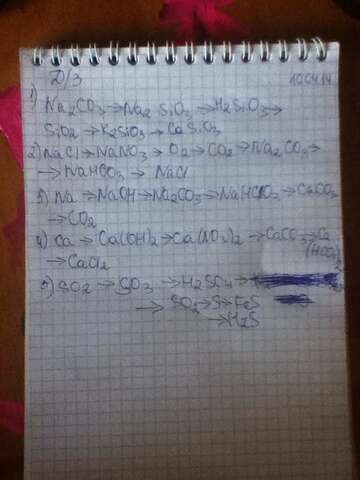 Д/З 10.04.14
1) Na2CO3→Na2SiO3→H2SiO3→
SiO2→K2SiO3→CaSiO3
2) NaCl→NaNO3→O2→CO2→Na2CO3→
→NaHCO3→NaCl
3) Na→NaOH→Na2CO3→NaHCO3→CaCO3
→CO2
4) Ca→Ca(OH)2→Ca(NO3)2→CaCO3→Ca
(HCO3)2
→CaCl2
5) SO2→SO3→H2SO4→
→SO2→S→FeS
→H2S